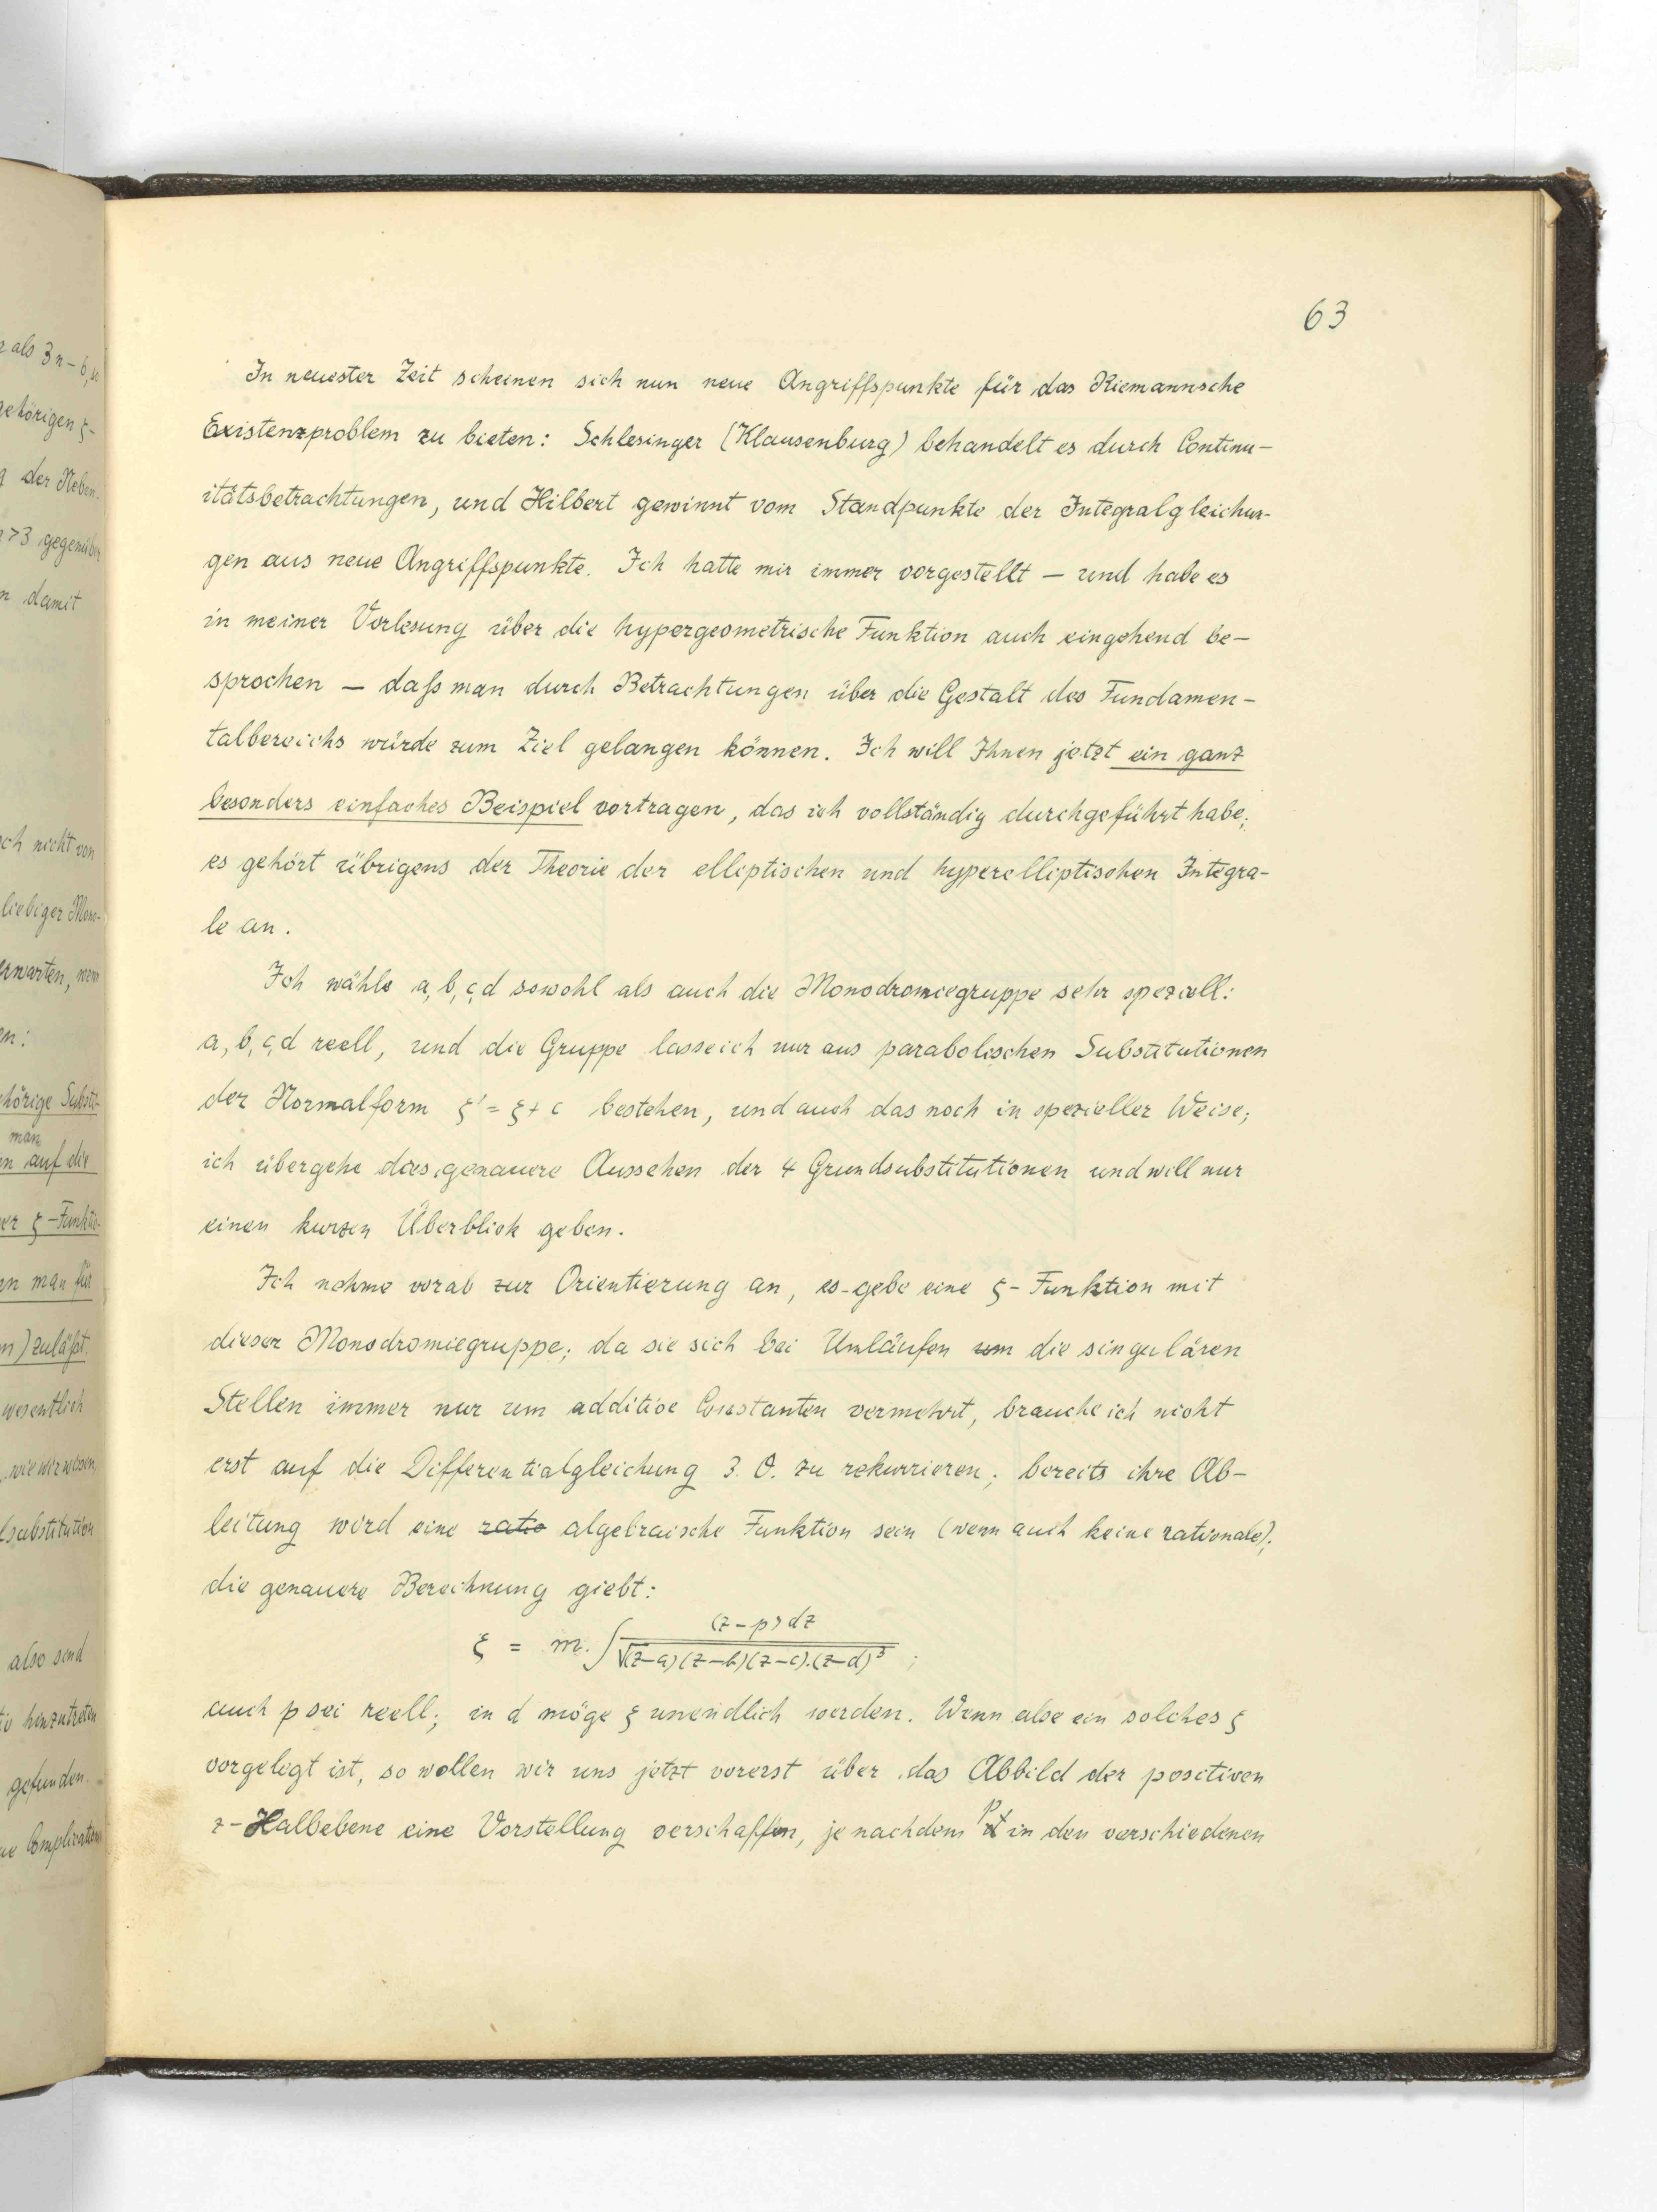 63
In neuester Zeit scheinen sich nun neue Angriffspunkte für das Riemannsche
Existenzproblem zu bieten: Schlesinger (Klausenburg) behandelt es durch Continu-
itätsbetrachtungen, und Hilbert gewinnt vom Standpunkte der Integralgleichun-
gen aus neue Angriffspunkte. Ich hatte mir immer vorgestellt — und habe es
in meiner Vorlesung über die hypergeometrische Funktion auch eingehend be-
sprochen — daß man durch Betrachtungen über die Gestalt des Fundamen-
talbereichs würde zum Ziel gelangen können. Ich will Ihnen jetzt ein ganz
besonders einfaches Beispiel vortragen, das ich vollständig durchgeführt habe;
es gehört übrigens der Theorie der elliptischen und hyperelliptischen Integra-
le an.
Ich wähle a, b, c, d sowohl als auch die Monodromiegruppe sehr speziell:
a, b, c, d reell, und die Gruppe lasse ich nur aus parabolischen Substitutionen
der Normalform ξ' = ξ + c bestehen, und auch das noch in spezieller Weise;
ich übergehe das genauere Aussehen der 4 Grundsubstitutionen und will nur
einen kurzen Überblick geben.
Ich nehme vorab zur Orientierung an, es gebe eine ξ-Funktion mit
dieser Monodromiegruppe; da sie sich bei Umläufen um die singulären
Stellen immer nur um additive Constanten vermehrt, brauche ich nicht
erst auf die Differentialgleichung 3. O. zu rekurrieren; bereits ihre Ab-
leitung wird eine ratio algebraische Funktion sein (wenn auch keine rationale);
die genauere Berechnung giebt:
ξ = m. ∫ (z-p) dz / √(z-a)(z-b)(z-c).(z-d)³ ;
auch p sei reell; in d möge ξ unendlich werden. Wenn also ein solches ξ
vorgelegt ist, so wollen wir uns jetzt vorerst über das Abbild der positiven
z-Halbebene eine Vorstellung verschaffen, je nachdem p in den verschiedenen
z als 3n-6, so
gehörigen ξ-
der Neben-
>3 gegenüber
damit
nicht von
liebiger Mono-
erwarten, wenn
hörige Substi-
man
auf die
er ξ-Funktio-
man für
zuläßt.
wesentlich
wie wir wissen,
substitution
also sind
hinzutreten
gefunden.